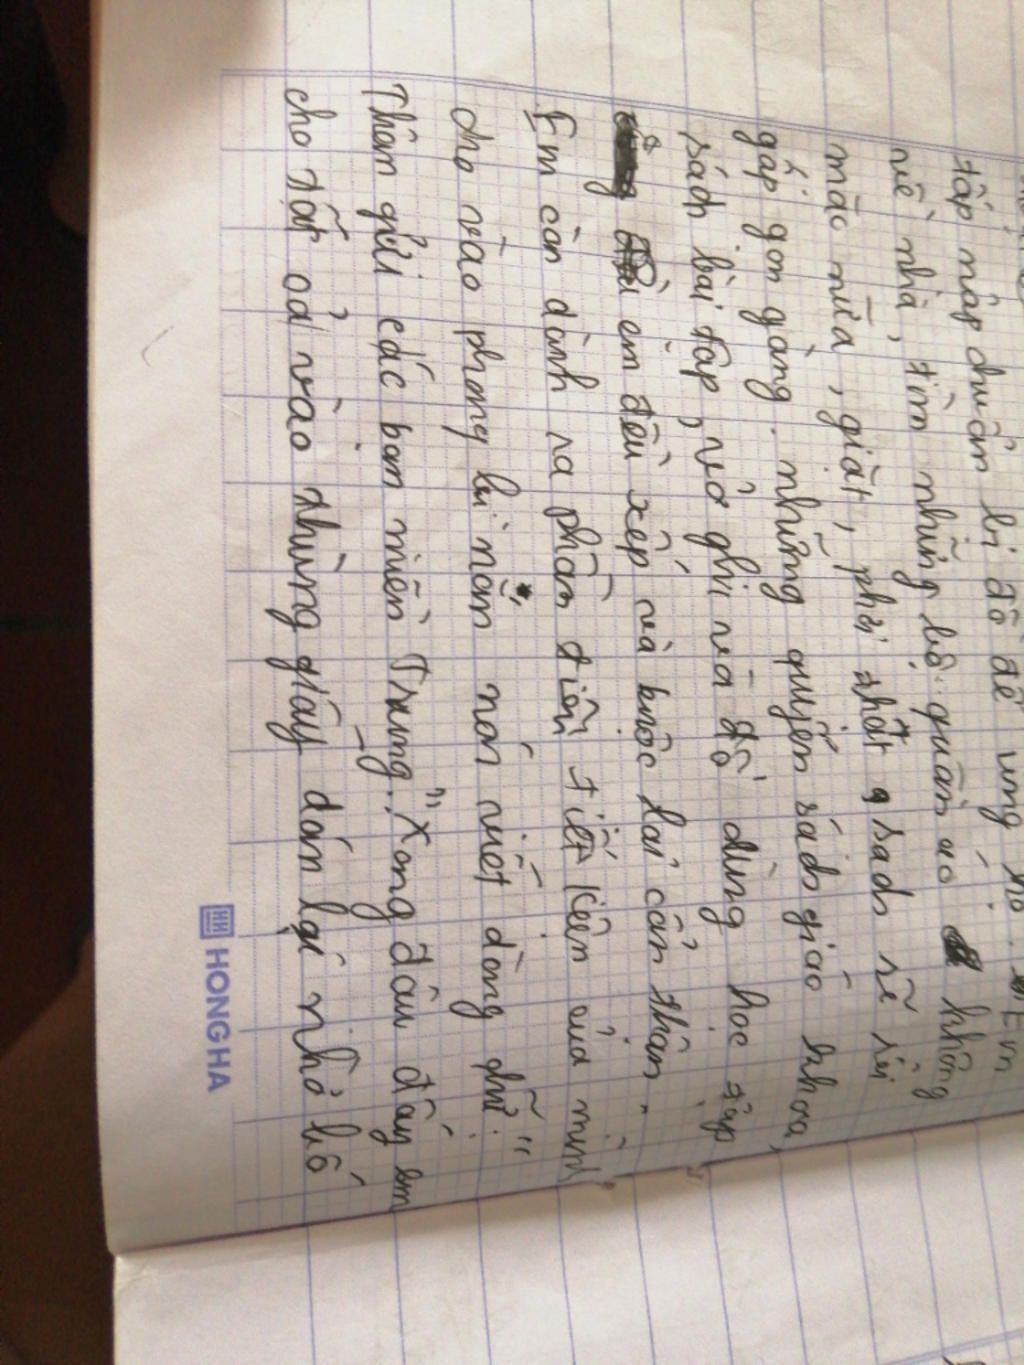 tấp nập chuẩn bị đồ để ủng hộ. Em
về nhà, tìm những bộ quần áo không
mặc nữa, giặt, phơi thật sạch sẽ rồi
gấp gọn gàng. những quyển sách giáo khoa,
sách bài tập, vở ghi và đồ dùng học tập
em đều xếp và bọc lại cẩn thận.
Em còn dành ra phần tiền tiết kiệm của mình
cho vào phong bì nắn nón viết dòng chữ: "
Thân gửi các bạn miền Trung." Xong đâu đấy em
cho tất cả vào thùng giấy dán lại nhờ bố
HONG HA